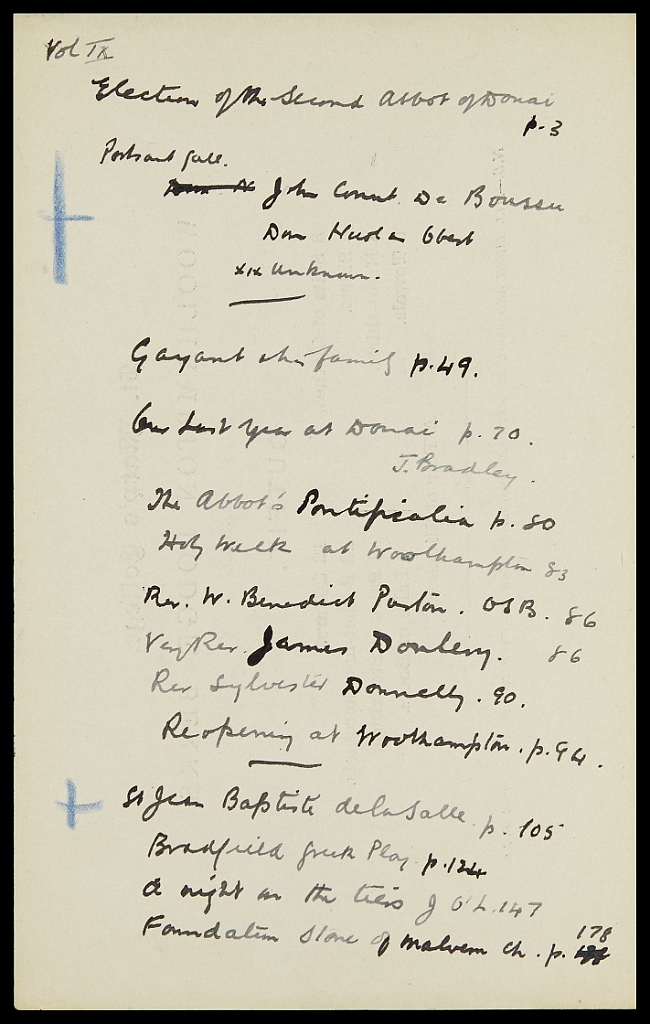 Vol IX
Election of the Second Abbot of Douai
p. 3
Portrait Gall.
John Conrut De Boussu
Dom Nicolas Obert
xix unknown.
Gayant & his family p. 49.
Our Last Year at Douai p. 70.
J. Bradley.
The Abbot's Pontificalia p. 80
Holy Week at Woolhampton 83
Rev. W. Benedict Purton. OSB. 86
Very Rev. James Dowling. 86
Rev Sylvester Donnelly. 90.
Reopening at Woolhampton. p. 94.
St Jean Baptiste de la Salle p. 105
Bradfield Greek Play p. 124
A night on the tiers J O'L. 147
Foundation Stone of Malvern Ch. p. 178